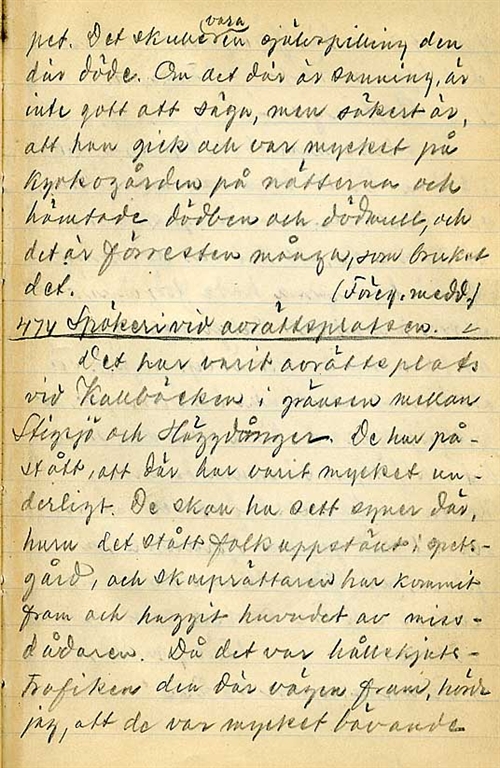 pet. Det skulle vara en självspilling den
där döde. Om det där är sanning, är
inte gott att säga, men säkert är,
att han gick och var mycket på
kyrkogården på nätterna och
hämtade dödben och dödmull, och
det är förresten många, som brukat
det. (Föreg. medd.)
474 Spökeri vid avrättsplatsen.
Det har varit avrättsplats
vid Kallbäcken i gränsen mellan
Stigsjö och Häggdånger. De har på-
stått, att där har varit mycket un-
derligt. De skall ha sett syner där,
huru det stått folk uppställt i spets-
gård, och skarprättaren har kommit
fram och huggit huvudet av miss-
dådaren. Då det var hållskjuts-
trafiken den där vägen fram, hörde
jag, att de var mycket bävande